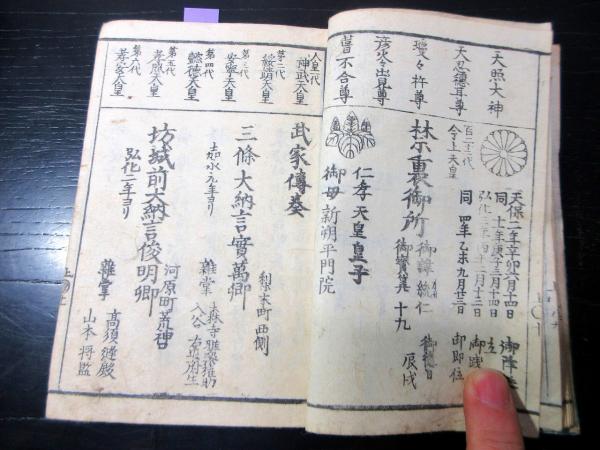 天照大神
天忍穂耳尊
瓊々杵尊
彦火々出見尊
葺不合尊
天保二年辛卯六月十四日 御降誕
同 十一年庚子三月十四日 立
弘化三年 二月十三日 御践
同 四年丁未九月廿三日 御即位
百二十二代
今上天皇
禁裏御所 御諱 統仁 御徳日
御寶算 十九 辰戌
仁孝天皇皇子
御母 新朔平門院
人皇一代
神武天皇
第二代
綏靖天皇
第三代
安寧天皇
第四代
懿徳天皇
第五代
孝昭天皇
第六代
孝安天皇
武家傳奏
梨木町西側
三條大納言實萬卿
嘉永元年ヨリ 雜掌
河原町荒神
坊城前大納言俊明卿
弘化二年ヨリ
雜掌 高須縫殿
山本将監